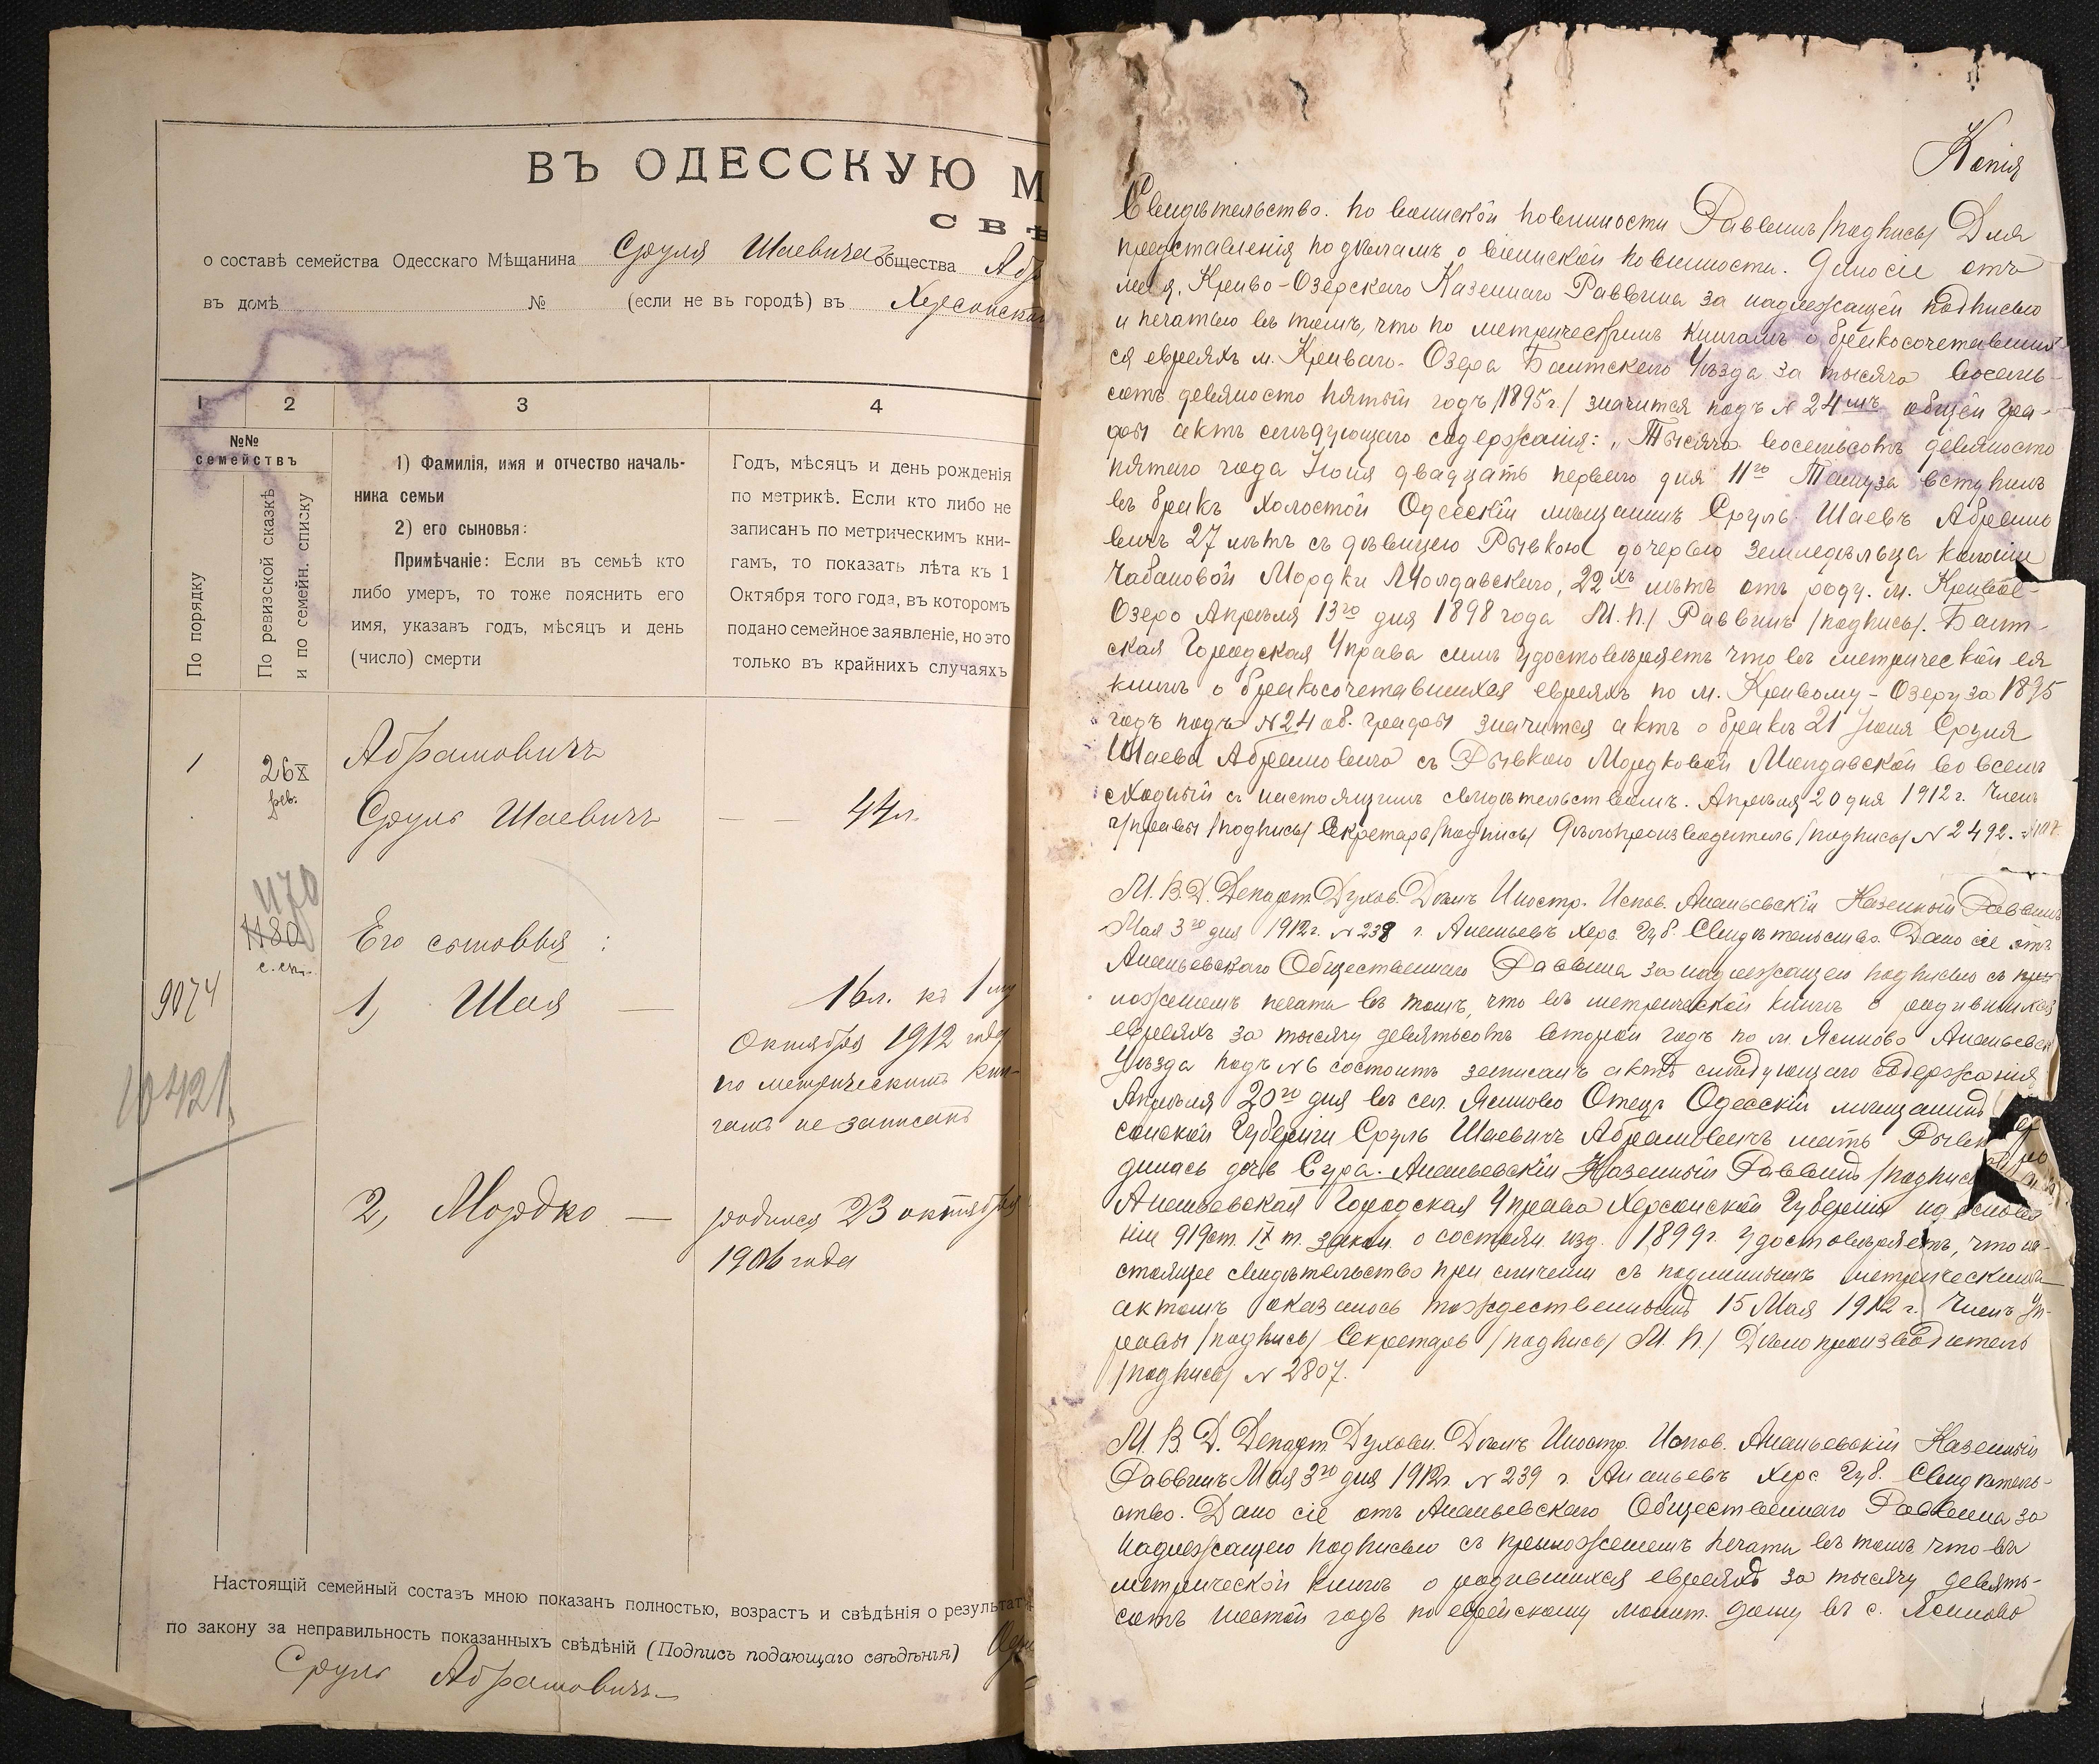 ВЪ ОДЕССКУЮ М
СВѢ
о составѣ семейства Одесскаго Мѣщанина Сруля Шаевича общества Абр
въ домѣ № (если не въ городѣ) въ Херсонской
1 2 3 4
№№ семействъ
По порядку
По ревизской сказкѣ и по семейн. списку
1) Фамилія, имя и отчество началь-
ника семьи
2) его сыновья:
Примѣчаніе: Если въ семьѣ кто
либо умеръ, то тоже пояснить его
имя, указавъ годъ, мѣсяцъ и день
(число) смерти
Годъ, мѣсяцъ и день рожденія
по метрикѣ. Если кто либо не
записанъ по метрическимъ кни-
гамъ, то показать лѣта къ 1
Октября того года, въ которомъ
подано семейное заявленіе, но это
только въ крайнихъ случаяхъ
1 26 X Абрамовичъ
рев.
Сруль Шаевичъ — — 44 л.
1170
1180 Его сыновья:
с. сп.
9074 1, Шая — 16 л. къ 1му
Октября 1912 года
по метрическимъ кни-
гамъ не записанъ
10421
2, Мордко — родился 23 октября
1906 года
Настоящій семейный составъ мною показанъ полностью, возрастъ и свѣдѣнія о результат
по закону за неправильность показанныхъ свѣдѣній (Подпись подающаго свѣдѣнія)
Сруль Абрамовичъ
Копія
Свидѣтельство. по воинской повинности Раввинъ /подпись/ Для
представленія по дѣламъ о воинской повинности. Дано сіе отъ
меня, Криво-Озерскаго Казеннаго Раввина за надлежащей подписью
и печатью въ томъ, что по метрическимъ книгамъ о бракосочетавших
ся евреяхъ м. Криваго-Озера Балтскаго Уѣзда за тысяча восемь-
сотъ девяносто пятый годъ /1895 г./ значится подъ № 24мъ общей гра-
фы актъ слѣдующаго содержанія: „Тысяча восемьсотъ девяносто
пятаго года Іюня двадцать перваго дня 11го Тамуза вступилъ
въ бракъ холостой Одесскій мѣщанинъ Сруль Шаевъ Абрамо
вичъ 27 лѣтъ съ дѣвицею Рывкою дочерью земледѣльца колоніи
Чабановой Мордки Молдавскаго, 22хъ лѣтъ отъ роду. м. Кривое-
Озеро Апрѣля 13го дня 1898 года М. П./ Раввинъ /подпись/. Балт-
ская Городская Управа симъ удостовѣряетъ что въ метрической ея
книгѣ о бракосочетавшихся евреяхъ по м. Кривому-Озеру за 1895
годъ подъ № 24 об. графы значится актъ о бракѣ 21 Іюня Сруля
Шаева Абрамовича съ Рывкою Мордковой Молдавской во всемъ
сходный съ настоящимъ свидѣтельствомъ. Апрѣля 20 дня 1912 г. Членъ
Управы /подпись/ Секретарь /подпись/ Дѣлопроизводитель /подпись/ № 2492.
М. В. Д. Департ. Духов. Дѣлъ Иностр. Испов. Ананьевскій Казенный Раввинъ
Мая 3го дня 1912 г. № 238 г. Ананьевъ Херс. Губ. Свидѣтельство. Дано сіе отъ
Ананьевскаго Общественнаго Раввина за надлежащею подписью съ при
ложеніемъ печати въ томъ, что въ метрической книгѣ о родившихся
евреяхъ за тысячу девятьсотъ второй годъ по м. Ясиново Ананьевск
Уѣзда подъ № 6 состоитъ записанъ актъ слѣдующаго содержанія
Апрѣля 20го дня въ сел. Ясиново Отецъ Одесскій мѣщанинъ
сонской Губерніи Сруль Шаевичъ Абрамовичъ мать Рывк
дилась дочь Сура. Ананьевскій Казенный Раввинъ /подпись
Ананьевская Городская Управа Херсонской Губерніи на основа
ніи 919 ст. IX т. закон. о состоян. изд. 1899 г. удостовѣряетъ, что на-
стоящее свидѣтельство при сличеніи съ подлиннымъ метрическимъ
актомъ оказалось тождественнымъ 15 Мая 1912 г. Членъ Уп-
равы /подпись/ Секретарь /подпись/ М. П./ Дѣлопроизводитель
/подпись/ № 2807.
М. В. Д. Департ. Духовн. Дѣлъ Иностр. Испов. Ананьевскій Казенный
Раввинъ Мая 3го дня 1912 г. № 239 г. Ананьевъ Херс. Губ. Свидѣтель-
ство. Дано сіе отъ Ананьевскаго Общественнаго Раввина за
надлежащею подписью съ приложеніемъ печати въ томъ что въ
метрической книгѣ о родившихся евреяхъ за тысячу девять-
сотъ шестой годъ по еврейскому молит. дому въ с. Ясиново